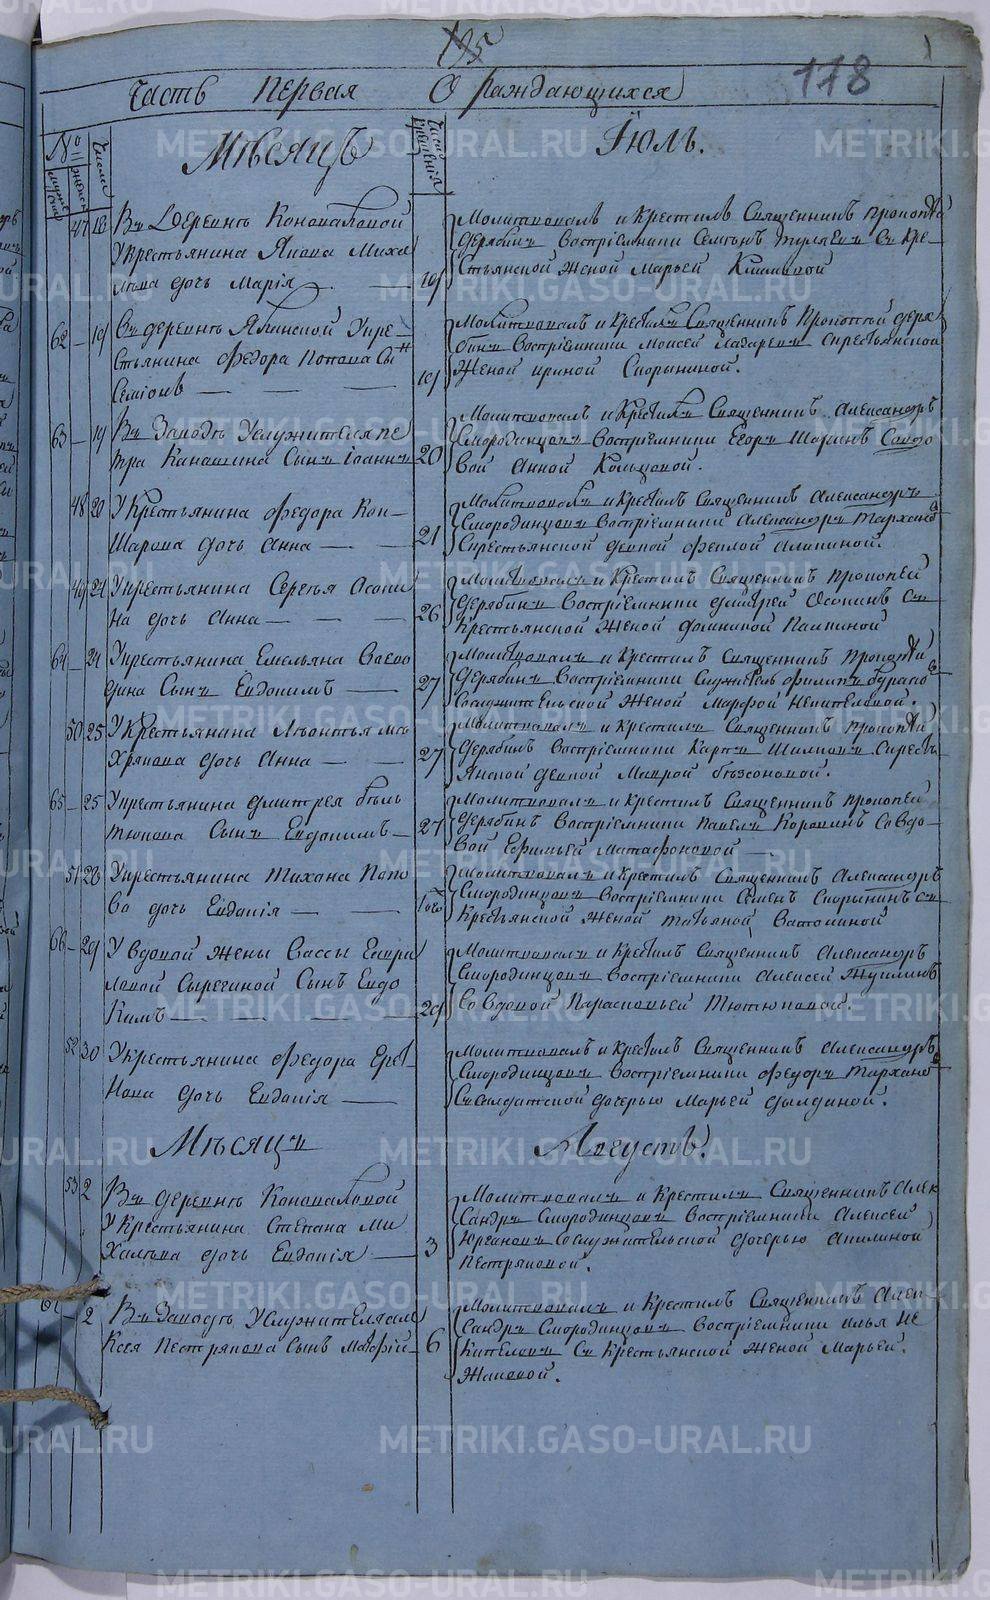 195
178
Часть первая О раждающихся
№
мужеска
женска
Числа
Мѣсяцъ
Число крещенія
Іюль.
47 18 Въ Деревнѣ Коноваловой
У крестьянина Якова Миха
лова дочь Марія
19 Молитвовалъ и Крестилъ Священникъ Прокопій
Дерябинъ Воспріемники Семенъ с кре-
стьянской женой Марьей
62 — 19 Въ деревнѣ Ялунской У кре-
стьянина Федора Попова сынъ
Семіонъ
19 Молитвовалъ и Крестилъ Священникъ Прокопій Деря
бинъ Воспріемники Моисей Лазаревъ с крестьянской
женой Ириной Спорыниной.
63 — 19 Въ Заводѣ У служителя Пе
тра Канашина Сынъ Іоаннъ
20 Молитвовалъ и Крестилъ Священникъ Александръ
Смородинцовъ Воспріемники Егоръ Шаринъ Со вдо
вой Анной Кольцовой.
48 20 У Крестьянина Федора Кок-
шарова дочь Анна
21 Молитвовалъ и Крестилъ Священникъ Александръ
Смородинцовъ Воспріемники Александръ Тарханов
С крестьянской девкой Феклой
49 24 У крестьянина Сергѣя Осоки
на дочь Анна
26 Молитвовалъ и Крестилъ Священникъ Прокопей
Дерябинъ Воспріемники Дмитрей Осокинъ Съ
Крестьянской женой Домникой
64 — 24 У крестьянина Емельяна Заево
дчина Сынъ Евдокимъ
27 Молитвовалъ и Крестилъ Священникъ Прокопій
Дерябинъ Воспріемники Служитель Филипъ
Со служительской женой Марфой
50 25 У Крестьянина Леонтья
дочь Анна
27 Молитвовалъ и Крестилъ Священникъ Прокопій
Дерябинъ Воспріемники Карпъ С кресть
янской девкой Маврой Безсоновой.
65 — 25 У крестьянина Дмитрея Бѣль
тюкова Сынъ Евдокимъ
27 Молитвовалъ и Крестилъ Священникъ Прокопей
Дерябинъ Воспріемники Павелъ Коровинъ Со вдо-
вой Ефимьей Матафоновой
51 28 У крестьянина Тихана Попо
ва дочь Евдокія
Молитвовалъ и Крестилъ Священникъ Александръ
Смородинцовъ Воспріемники Семенъ Спорынинъ съ
Крестьянской женой Татьяной
66 — 29 У вдовой жены Вассы
Сынъ Евдо
кимъ
29 Молитвовалъ и Крестилъ Священникъ Александръ
Смородинцовъ Воспріемники Алексей
Со вдовой Парасковьей Тютюковой.
52 30 У крестьянина Федора
дочь Евдокія
Молитвовалъ и Крестилъ Священникъ Александръ
Смородинцовъ Воспріемники Федоръ Тарханов
Съ салдатской дочерью Марьей Дылдиной.
Мѣсяцъ Августъ.
53 2 Въ деревнѣ Коноваловой
У Крестьянина Степана Ми
халова дочь Евдокія
3 Молитвовалъ и Крестилъ Священникъ Алек
сандръ Смородинцовъ Воспріемники Алексей
Со служительской дочерью Акилиной
Пестряковой.
— 2 Въ Заводѣ У служителя Але
ксея Пестрякова Сынъ Матфій
6 Молитвовалъ и Крестилъ Священникъ Алек
сандръ Смородинцовъ Воспріемники Илья
Съ Крестьянской женой Марьей
METRIKI.GASO-URAL.RU